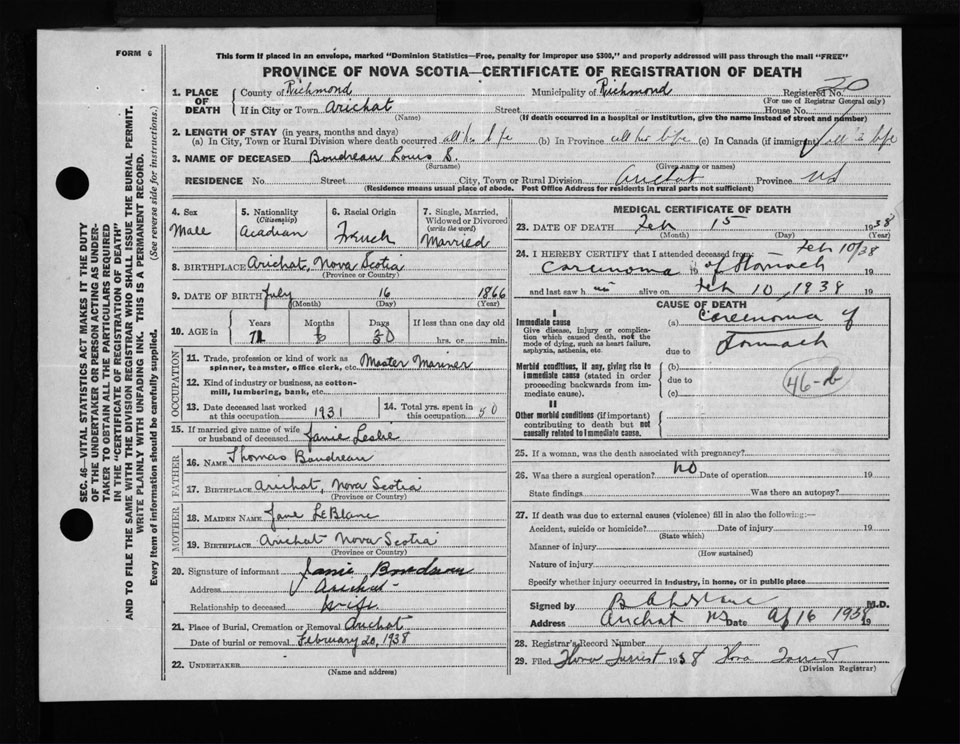 FORM 6
This form if placed in an envelope, marked "Dominion Statistics—Free, penalty for improper use $300," and properly addressed will pass through the mail "FREE"
PROVINCE OF NOVA SCOTIA—CERTIFICATE OF REGISTRATION OF DEATH
SEC. 46—VITAL STATISTICS ACT MAKES IT THE DUTY
OF THE UNDERTAKER OR PERSON ACTING AS UNDER-
TAKER TO OBTAIN ALL THE PARTICULARS REQUIRED
IN THE "CERTIFICATE OF REGISTRATION OF DEATH"
AND TO FILE THE SAME WITH THE DIVISION REGISTRAR WHO SHALL ISSUE THE BURIAL PERMIT.
WRITE PLAINLY WITH UNFADING INK. THIS IS A PERMANENT RECORD.
Every item of information should be carefully supplied. (See reverse side for instructions.)
1. PLACE OF DEATH County of Richmond Municipality of Richmond Registered No.
(For use of Registrar General only)
If in City or Town Arichat Street House No.
(Name) (If death occurred in a hospital or institution, give the name instead of street and number)
2. LENGTH OF STAY (in years, months and days)
(a) In City, Town or Rural Division where death occurred all his life (b) In Province all his life (c) In Canada (if immigrant) all his life
3. NAME OF DECEASED Boudreau Louis S.
(Surname) (Given name or names)
RESIDENCE No. Street City, Town or Rural Division Arichat Province NS
(Residence means usual place of abode. Post Office Address for residents in rural parts not sufficient)
4. Sex Male
5. Nationality (Citizenship) Acadian
6. Racial Origin French
7. Single, Married, Widowed or Divorced (write the word) Married
8. BIRTHPLACE Arichat, Nova Scotia
(Province or Country)
9. DATE OF BIRTH July 16 1866
(Month) (Day) (Year)
10. AGE in Years Months Days If less than one day old
71 6 30 hrs. or min.
OCCUPATION
11. Trade, profession or kind of work as spinner, teamster, office clerk, etc. Master Mariner
12. Kind of industry or business, as cotton-mill, lumbering, bank, etc.
13. Date deceased last worked at this occupation 1931
14. Total yrs. spent in this occupation 50
15. If married give name of wife or husband of deceased Janie Leslie
FATHER
16. NAME Thomas Boudreau
17. BIRTHPLACE Arichat, Nova Scotia
(Province or Country)
MOTHER
18. MAIDEN NAME Jane LeBlanc
19. BIRTHPLACE Arichat Nova Scotia
(Province or Country)
20. Signature of informant Janie Boudreau
Address Arichat
Relationship to deceased Wife
21. Place of Burial, Cremation or Removal Arichat
Date of burial or removal February 20, 1938
22. UNDERTAKER
(Name and address)
MEDICAL CERTIFICATE OF DEATH
23. DATE OF DEATH Feb 15 1938
(Month) (Day) (Year)
24. I HEREBY CERTIFY that I attended deceased from: Feb 10/38
Carcinoma of Stomach 19
and last saw him alive on Feb 10, 1938 19
CAUSE OF DEATH
I
Immediate cause (a) Carcinoma of
Give disease, injury or complication which caused death, not the mode of dying, such as heart failure, asphyxia, asthenia, etc.
due to Stomach
Morbid conditions, if any, giving rise to immediate cause (stated in order proceeding backwards from immediate cause).
(b)
due to
(c)
46-b
II
Other morbid conditions (if important) contributing to death but not causally related to immediate cause.
25. If a woman, was the death associated with pregnancy?
26. Was there a surgical operation? No Date of operation 19
State findings Was there an autopsy?
27. If death was due to external causes (violence) fill in also the following:—
Accident, suicide or homicide? Date of injury 19
(State which)
Manner of injury
(How sustained)
Nature of injury
Specify whether injury occurred in industry, in home, or in public place
Signed by M.D.
Address Arichat NS Date Ap 16 1938 19
28. Registrar's Record Number
29. Filed 1938
(Division Registrar)